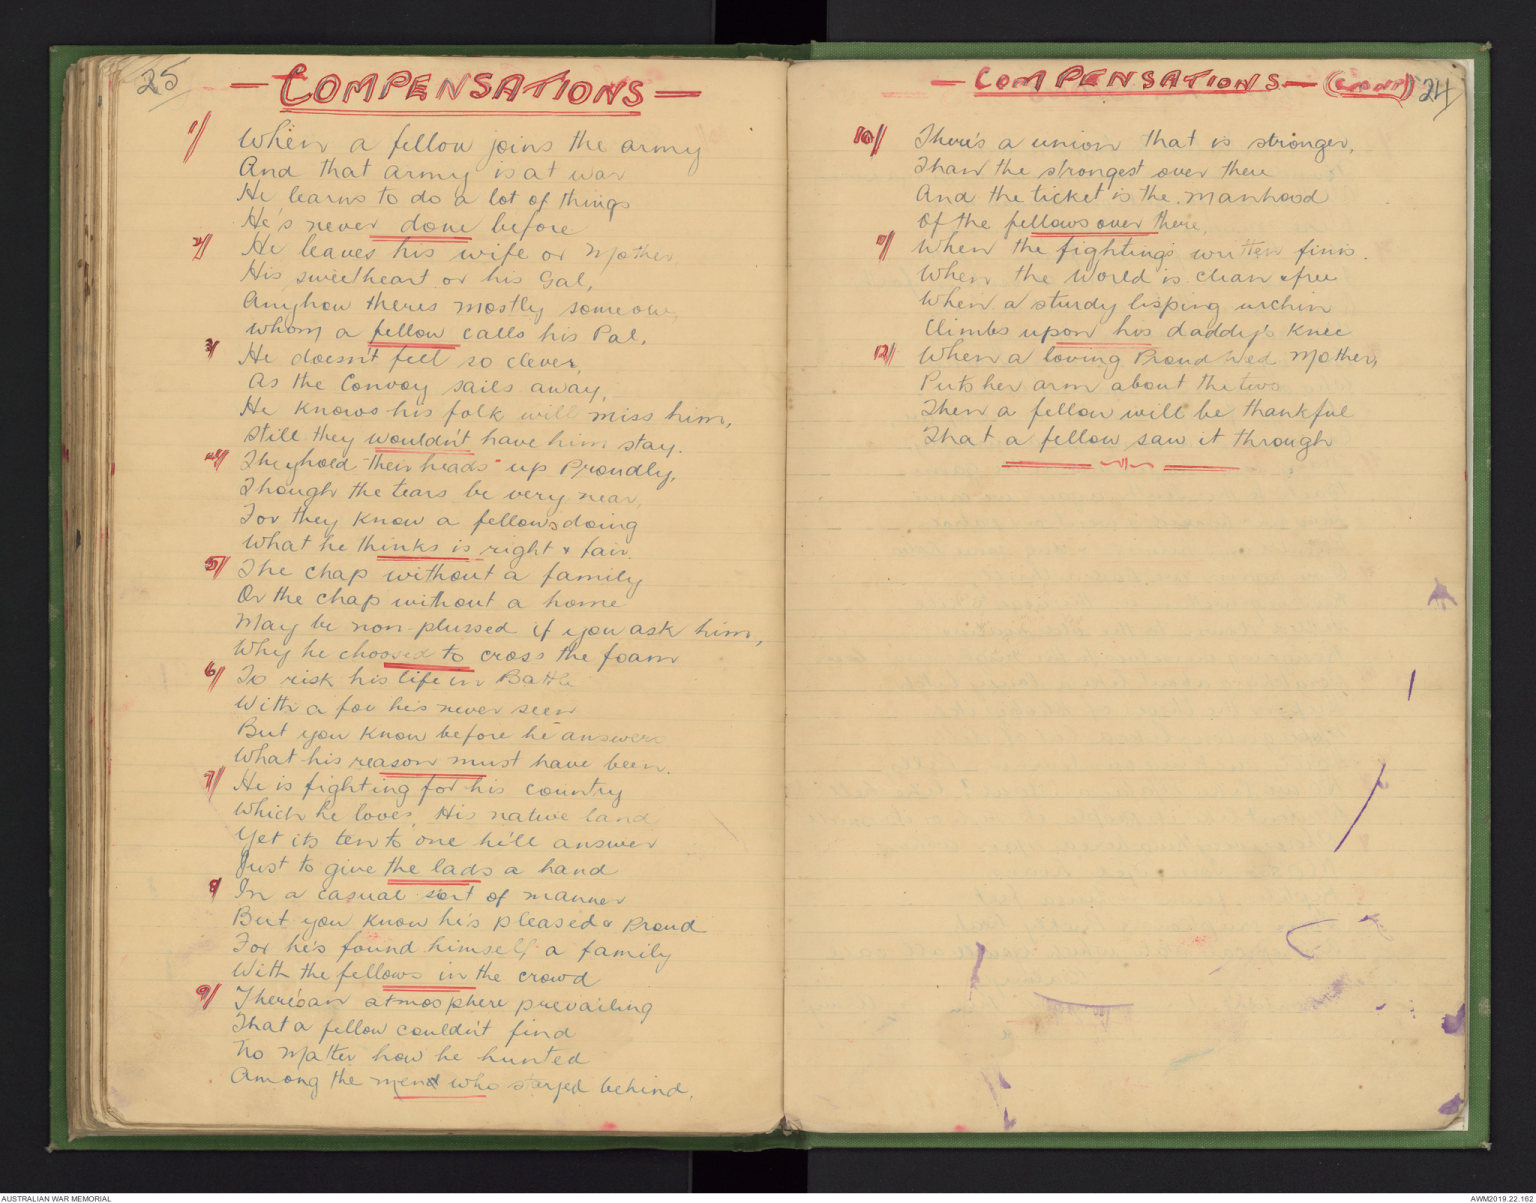 25
— COMPENSATIONS —
1// When a fellow joins the army
And that army is at war
He learns to do a lot of things
He's never done before
2// He leaves his wife or Mother
His sweetheart or his Gal,
Anyhow theres mostly someone,
Whom a fellow calls his Pal.
3// He doesn't feel so clever,
As the Convoy sails away,
He knows his folk will miss him,
Still they wouldn't have him stay.
4// They hold their heads up Proudly,
Though the tears be very near,
For they know a fellows doing
What he thinks is right & fair.
5// The chap without a family
Or the chap without a home
May be non-plussed if you ask him,
Why he choosed to cross the foam
6// To risk his life in Battle
With a foe he's never seen
But you know before he answers
What his reason must have been.
7// He is fighting for his country
Which he loves, His native land
Yet its ten to one he'll answer
Just to give the lads a hand
8// In a casual sort of manner
But you know he's pleased & Proud
For he's found himself a family
With the fellows in the crowd
9// There's an atmosphere prevailing
That a fellow couldn't find
No Matter how he hunted
Among the men who stayed behind.
— COMPENSATIONS — (Cont) 24
10// There's a union that is stronger,
Than the strongest over there
And the ticket is the manhood
Of the fellows over there,
11// When the fighting's written finis.
When the World is clean & free
When a sturdy lisping urchin
Climbs upon his daddy's Knee
12// When a loving Proud Wed Mother,
Puts her arm about the two
Then a fellow will be thankful
That a fellow saw it through
AUSTRALIAN WAR MEMORIAL
AWM2019.22.162